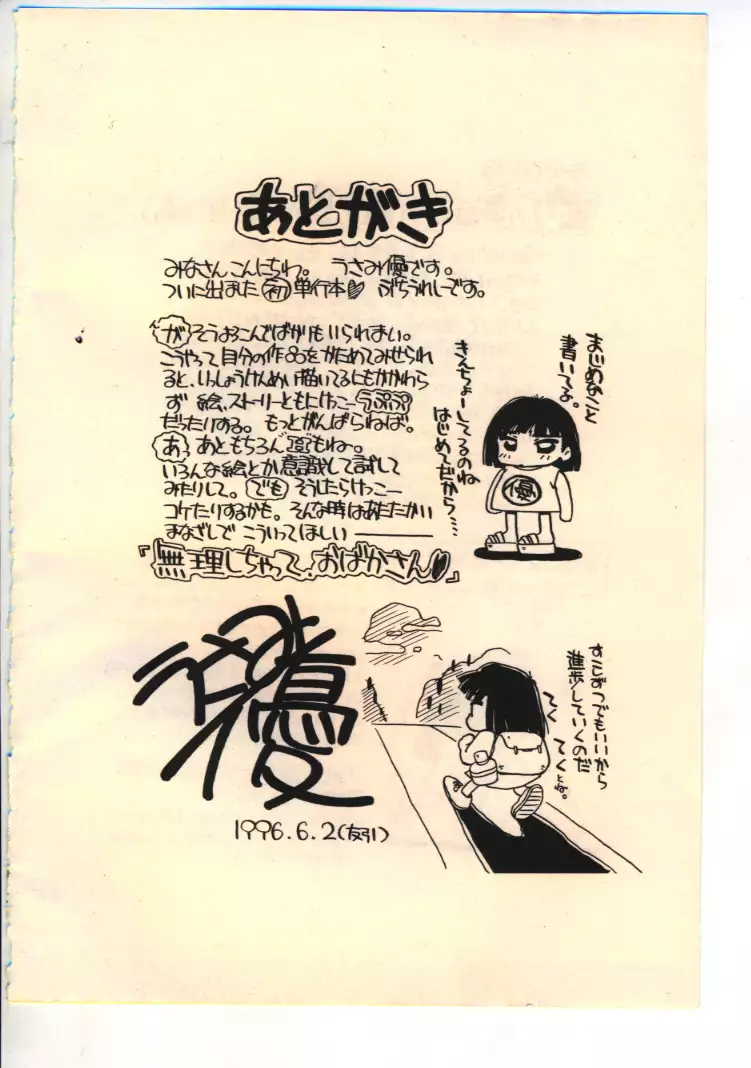 あとがき
みなさんこんにちわ。 うさみ優です。
ついに出ました 初 単行本♥ ぶちうれしーです。
が そうよろこんでばかりもいられまい。
こうやって自分の作品をかためてみせられ
ると、いっしょうけんめい描いてるにもかかわら
ず 絵、ストーリーともにけっこーうぷぷ
だったりする。 もっとがんばらねば。
あっ あともちろん 頁もね。
いろんな絵とか意識して試して
みたりして。でも そうしたらけっこー
コケたりするかも。そんな時はあたたかい
まなざしで こういってほしい ――――
『無理しちゃって、おばかさん♥』
まじめなこと
書いてるよ。
きんちょーしてるのね
はじめてだから……
優
うさみ優
1996.6.2(友引)
すこしずつでもいいから
進歩していくのだ
てく
てくとね。